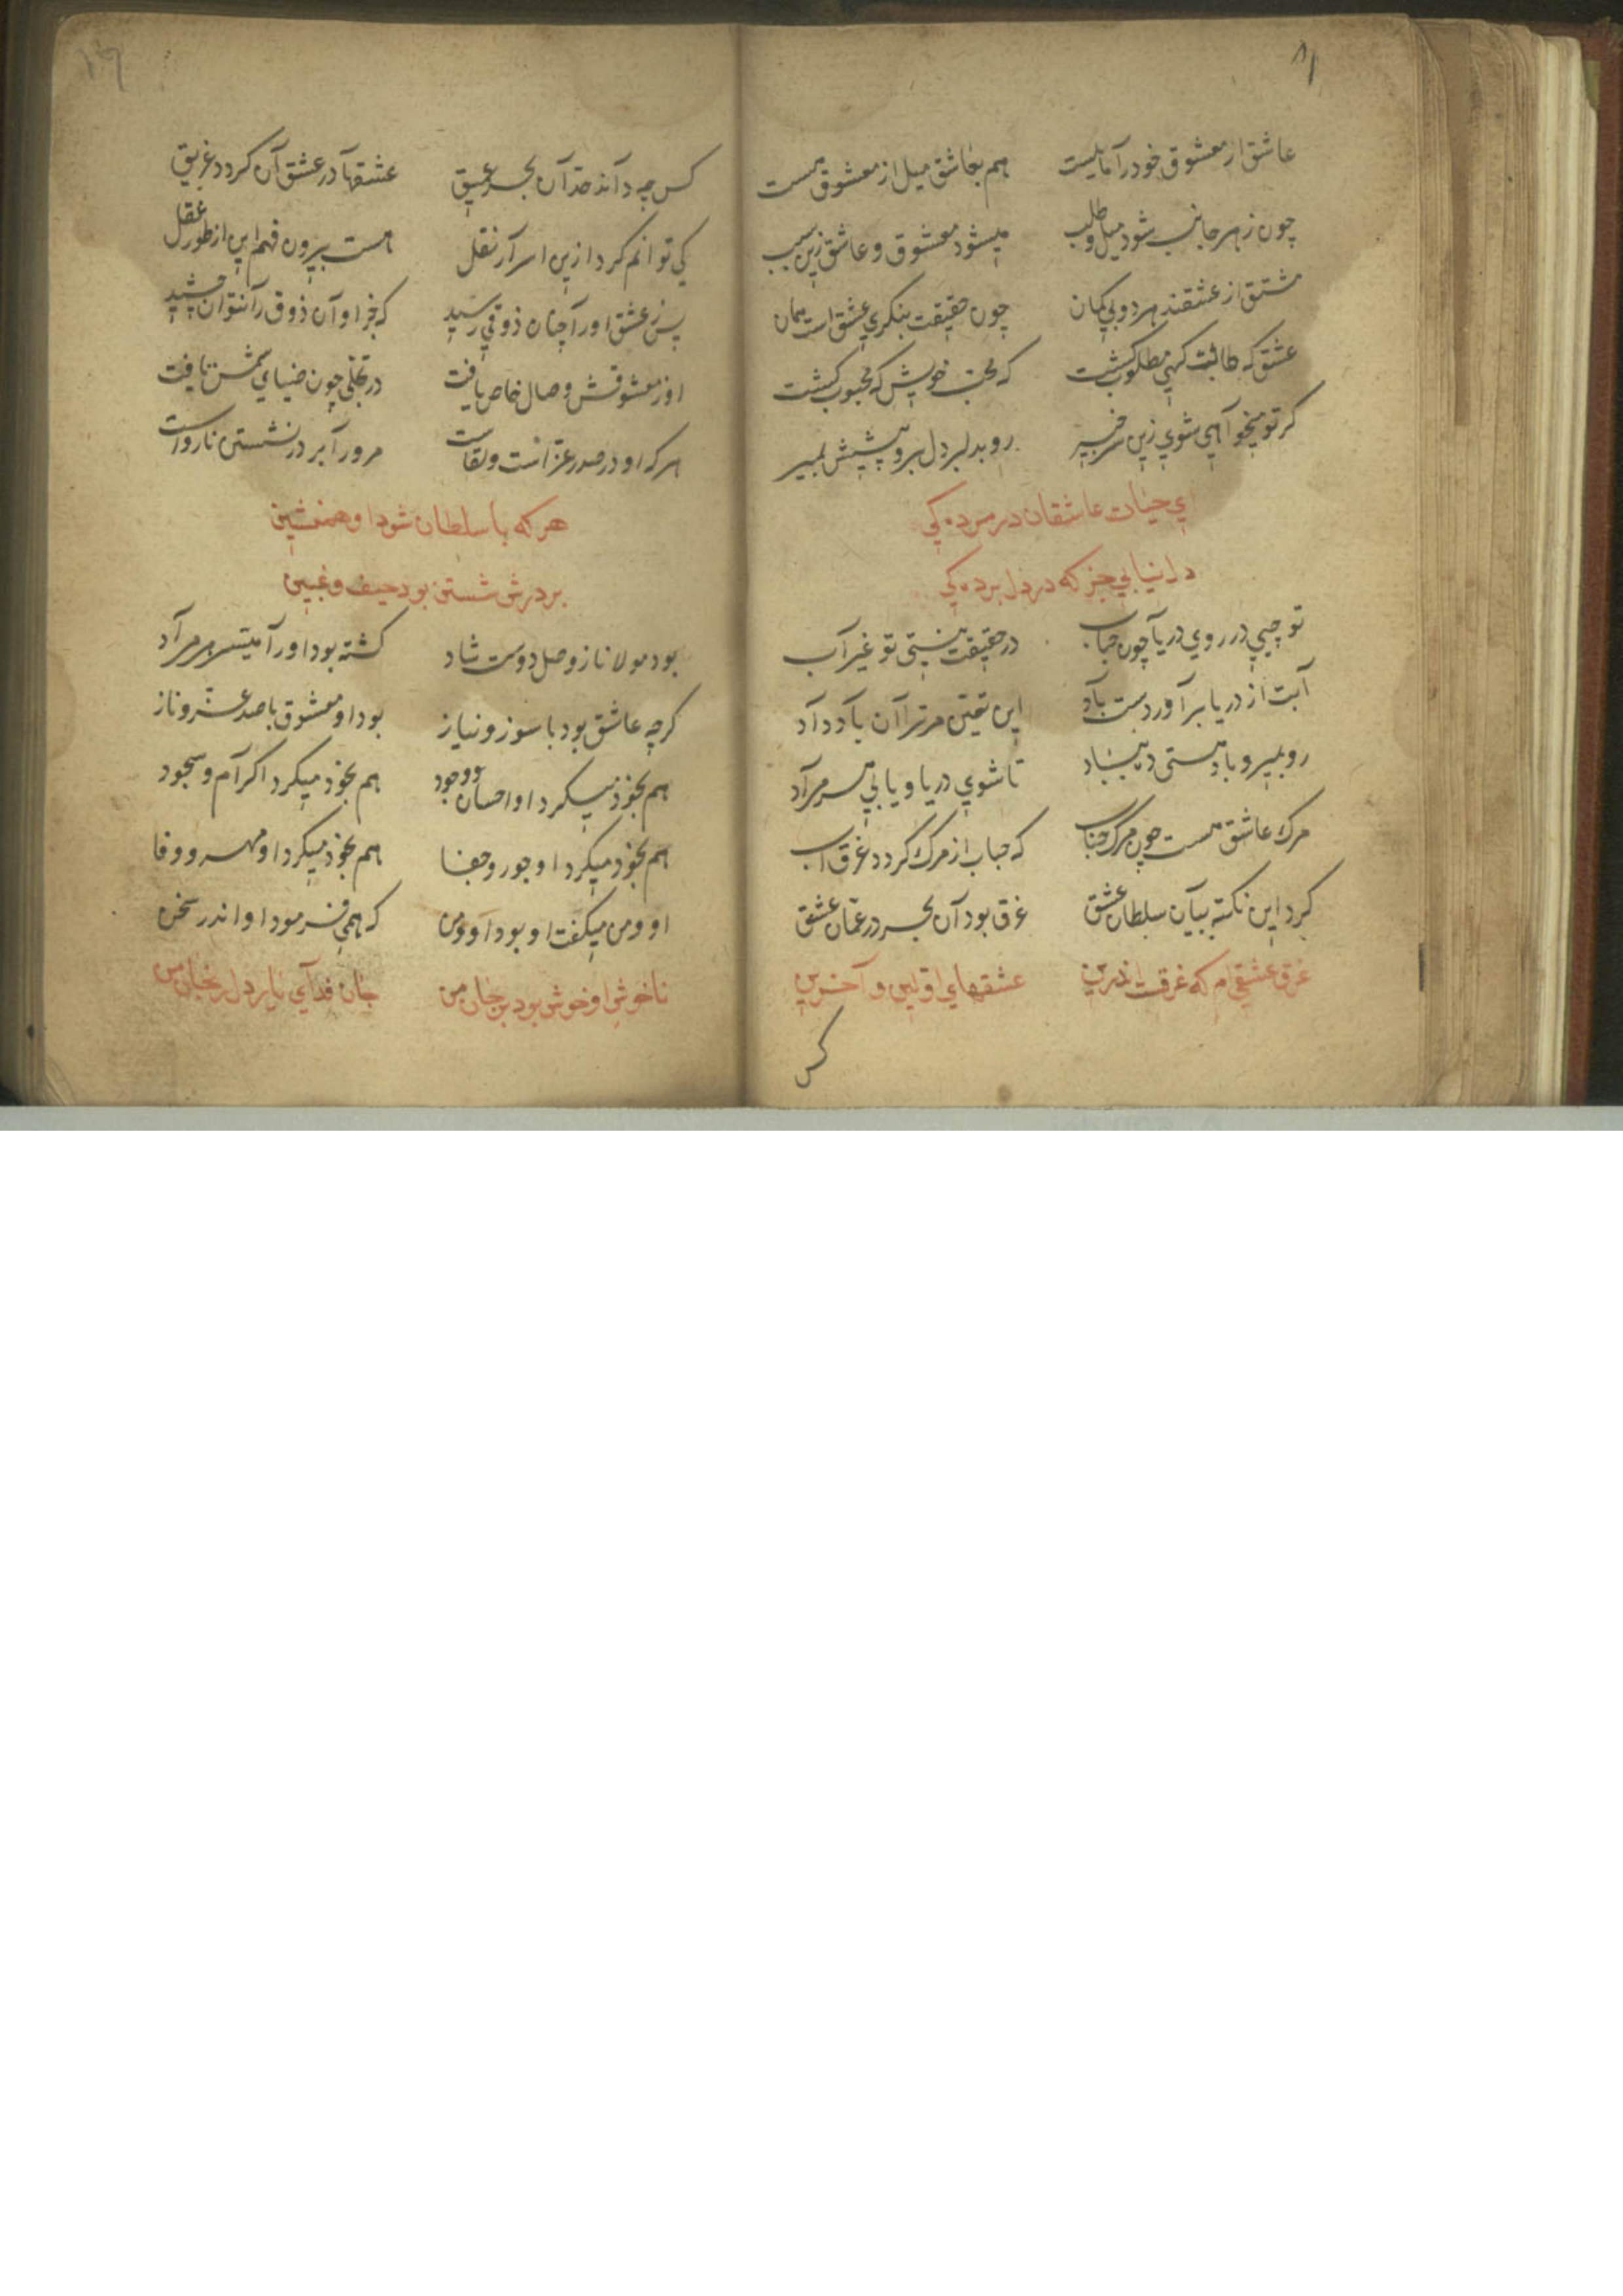 ۸۱
عاشق از معشوق خود را مایلیست هم بعاشق میل از معشوق هست
چون ز هر جانب شود میل و طلب میشود معشوق و عاشق زین سبب
مشتق از عشقند هر دو بی کمان چون حقیقت بنکری عشق است همان
عشق که طالبت کهی مطلوب کشت که محب خویش که محبوب کشت
کر تو میخواهی شوی زین سر خبیر رو بدلبر دل بر و پیشش بمیر
ای حیات عاشقان در مردکی
دل نیابی جز که در دل بردکی
تو چیی در روی دریا چون حباب در حقیقت نیستی تو غیر آب
آبت از دریا بر آورد دست باد این تعین مر ترا آن باد داد
رو بمیر و باد هستی ده بباد تا شوی دریا و یابی سر مراد
مرک عاشق هست چون مرک حباب که حباب از مرک کردد غرق آب
کرد این نکته بیان سلطان عشق غرق بود آن بحر در عمان عشق
غرق عشقی ام که غرقست اندرین عشقهای اولین و آخرین
کس
کس چه داند حد آن بحر عمیق عشقها در عشق آن کردد غریق
کی توانم کرد ازین اسرار نقل هست بیرون فهم این از طور عقل
پس ز عشق او را چنان ذوقی رسید که جز او آن ذوق را نتوان چشید
او ز معشوقش وصال خاص یافت در تجلی چون ضیای شمس تافت
هر که او در صدر عزانست و لقاست مرورا بر در نشستن نارواست
هر که با سلطان شود او همنشین
بر درش شستن بود حیف و غبین
بود مولانا ز وصل دوست شاد کشته بود او را میسر هر مراد
کرچه عاشق بود با سوز و نیاز بود او معشوق با صد عز و ناز
هم بخود میکرد او احسان وجود هم بخود میکرد اکرام و سجود
هم بخود میکرد او جور و جفا هم بخود میکرد او مهر و وفا
او و من میکفت او بود او و من که همی فرمود او اندر سخن
ناخوش او خوش بود بر جان من جان فدای یار دل رنجان من